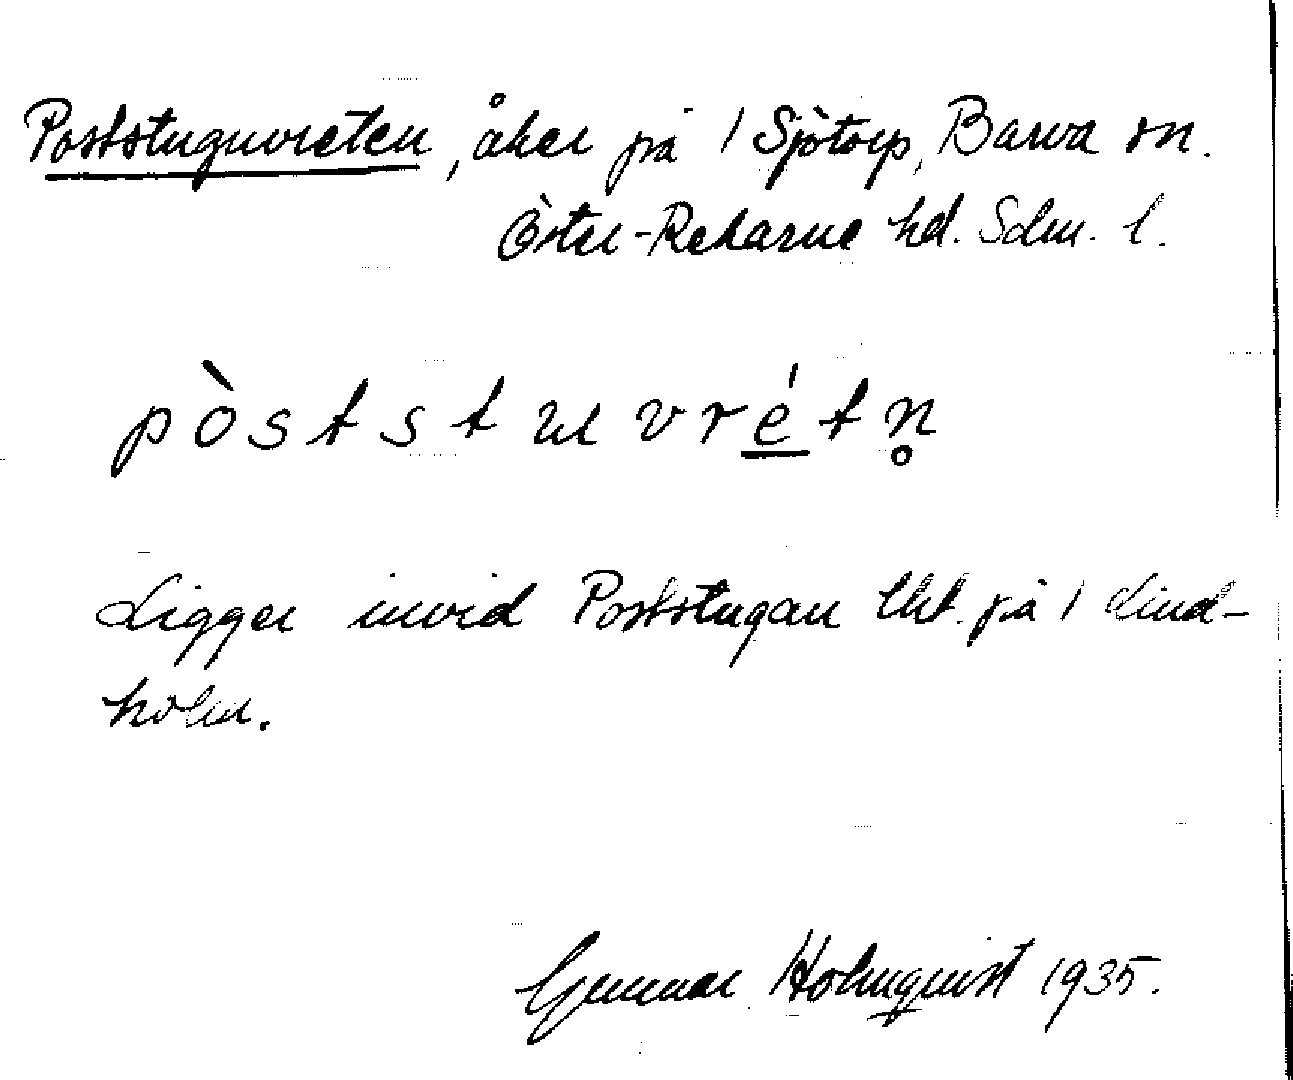 Poststuguvreten, åker på 1 Sjötorp, Barva sn.
Öster-Rekarne hd. Sdm. l.
pòstst u vrétn̥
Ligger invid Poststugan tht. på 1 Lind-
holm.
Gunnar Holmquist 1935.